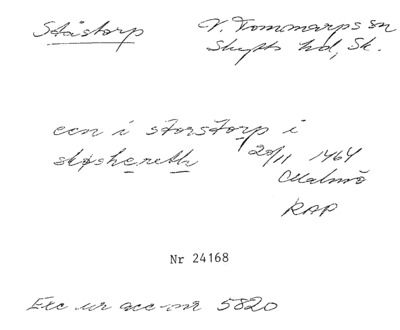 Ståstorp
V. Tommarps sn
Skytts hd, Sk.
een i storstorp i
skøshereth 20/11 1464
Malmö
RAP
Nr 24168
Exc ur acc-nr 5820